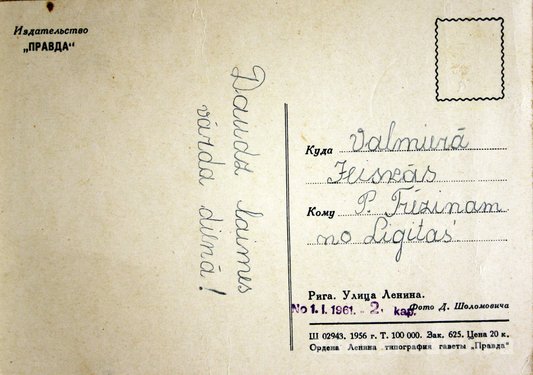 Издательство
„ПРАВДА“
Daudz laimes
vārda dienā!
Куда Valmierā
Кому P. Frēzinam
no Ligitas.
Рига. Улица Ленина.
Фото Д. Шоломовича
No 1. I. 1961. - 2. kap.
Ш 02943. 1956 г. Т. 100 000. Зак. 625. Цена 20 к.
Ордена Ленина типография газеты „Правда“